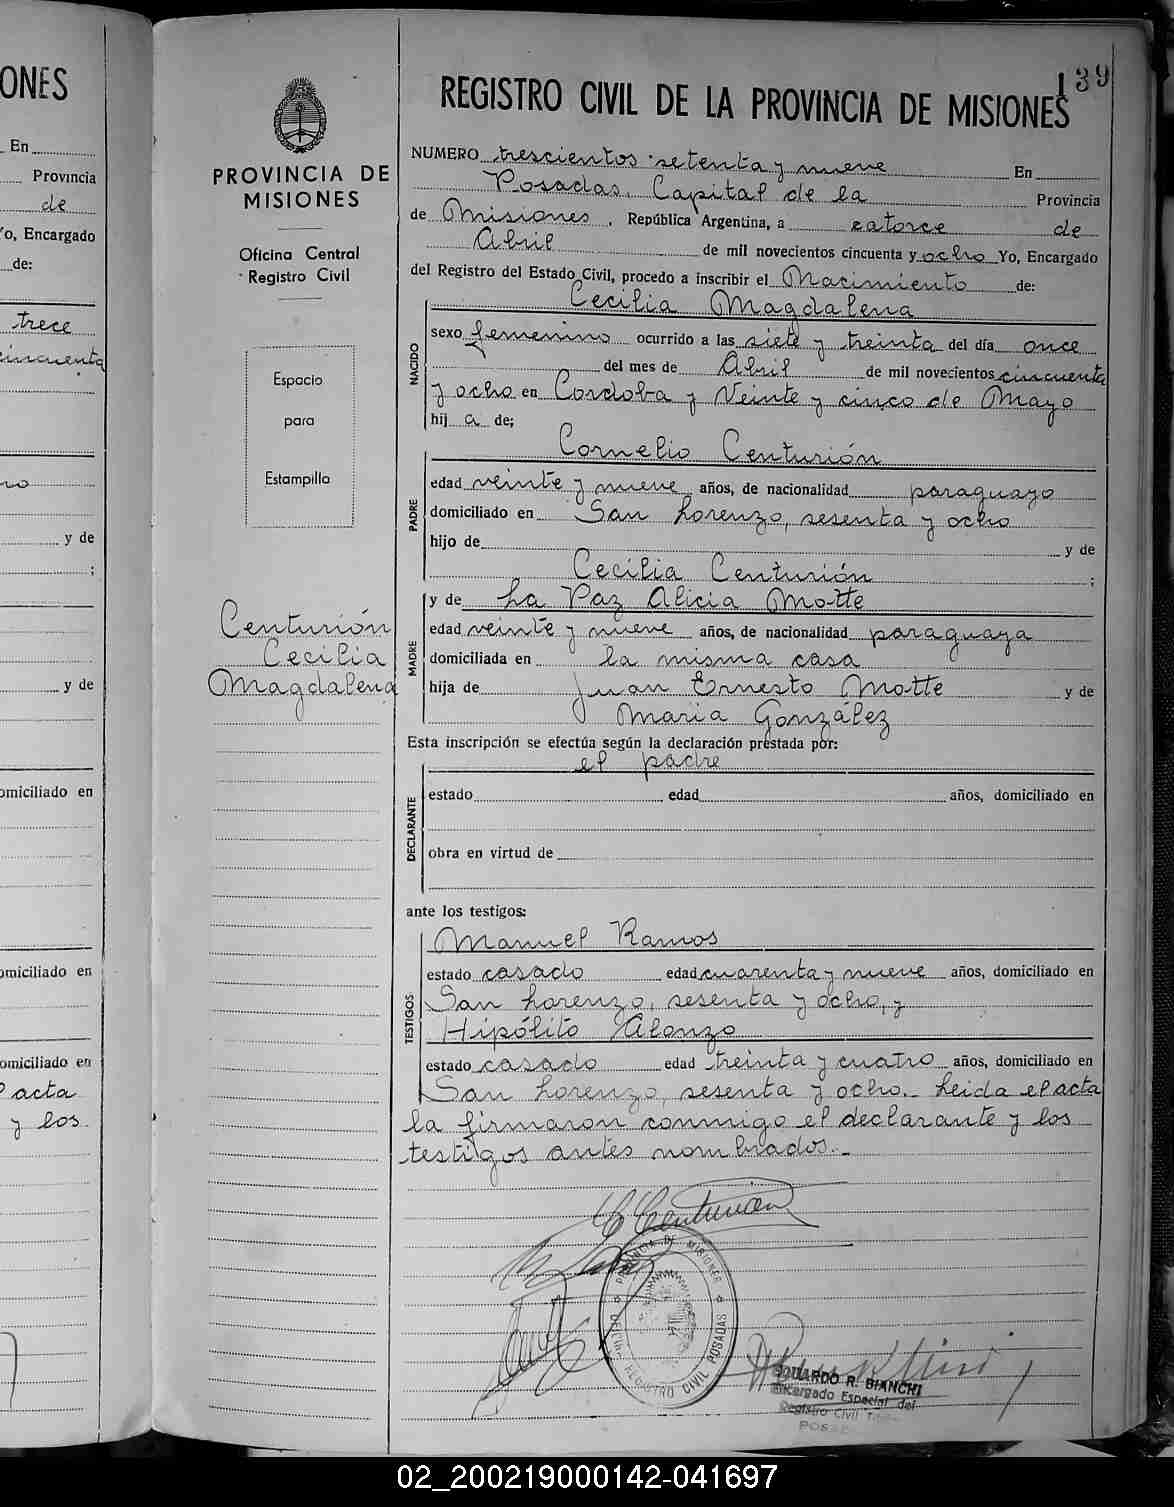 ONES
En
Provincia
de
o, Encargado
de:
trece
cincuenta
y de
;
y de
omiciliado en
omiciliado en
omiciliado en
acta
y los
139
PROVINCIA DE
MISIONES
Oficina Central
Registro Civil
Espacio
para
Estampilla
Centurión
Cecilia
Magdalena
REGISTRO CIVIL DE LA PROVINCIA DE MISIONES
NUMERO trescientos setenta y nueve En
Posadas, Capital de la Provincia
de Misiones, República Argentina, a catorce de
Abril de mil novecientos cincuenta y ocho Yo, Encargado
del Registro del Estado Civil, procedo a inscribir el Nacimiento de:
NACIDO
Cecilia Magdalena
sexo femenino ocurrido a las siete y treinta del día once
del mes de Abril de mil novecientos cincuenta
y ocho en Cordoba y Veinte y cinco de Mayo
hij a de;
PADRE
Cornelio Centurión
edad veinte y nueve años, de nacionalidad paraguayo
domiciliado en San Lorenzo, sesenta y ocho
hijo de y de
Cecilia Centurión ;
MADRE
y de La Paz Alicia Motte
edad veinte y nueve años, de nacionalidad paraguaya
domiciliada en la misma casa
hija de Juan Ernesto Motte y de
Maria González
Esta inscripción se efectúa según la declaración prestada por:
el padre
DECLARANTE
estado edad años, domiciliado en
obra en virtud de
ante los testigos:
TESTIGOS
Manuel Ramos
estado casado edad cuarenta y nueve años, domiciliado en
San Lorenzo, sesenta y ocho, y
Hipólito Alonzo
estado casado edad treinta y cuatro años, domiciliado en
San Lorenzo, sesenta y ocho. Leida el acta
la firmaron conmigo el declarante y los
testigos antes nombrados.
C Centurión
PROVINCIA DE MISIONES
REGISTRO CIVIL POSADAS
EDUARDO R. BIANCHI
Encargado Especial del
Registro Civil
POSADAS
02_200219000142-041697